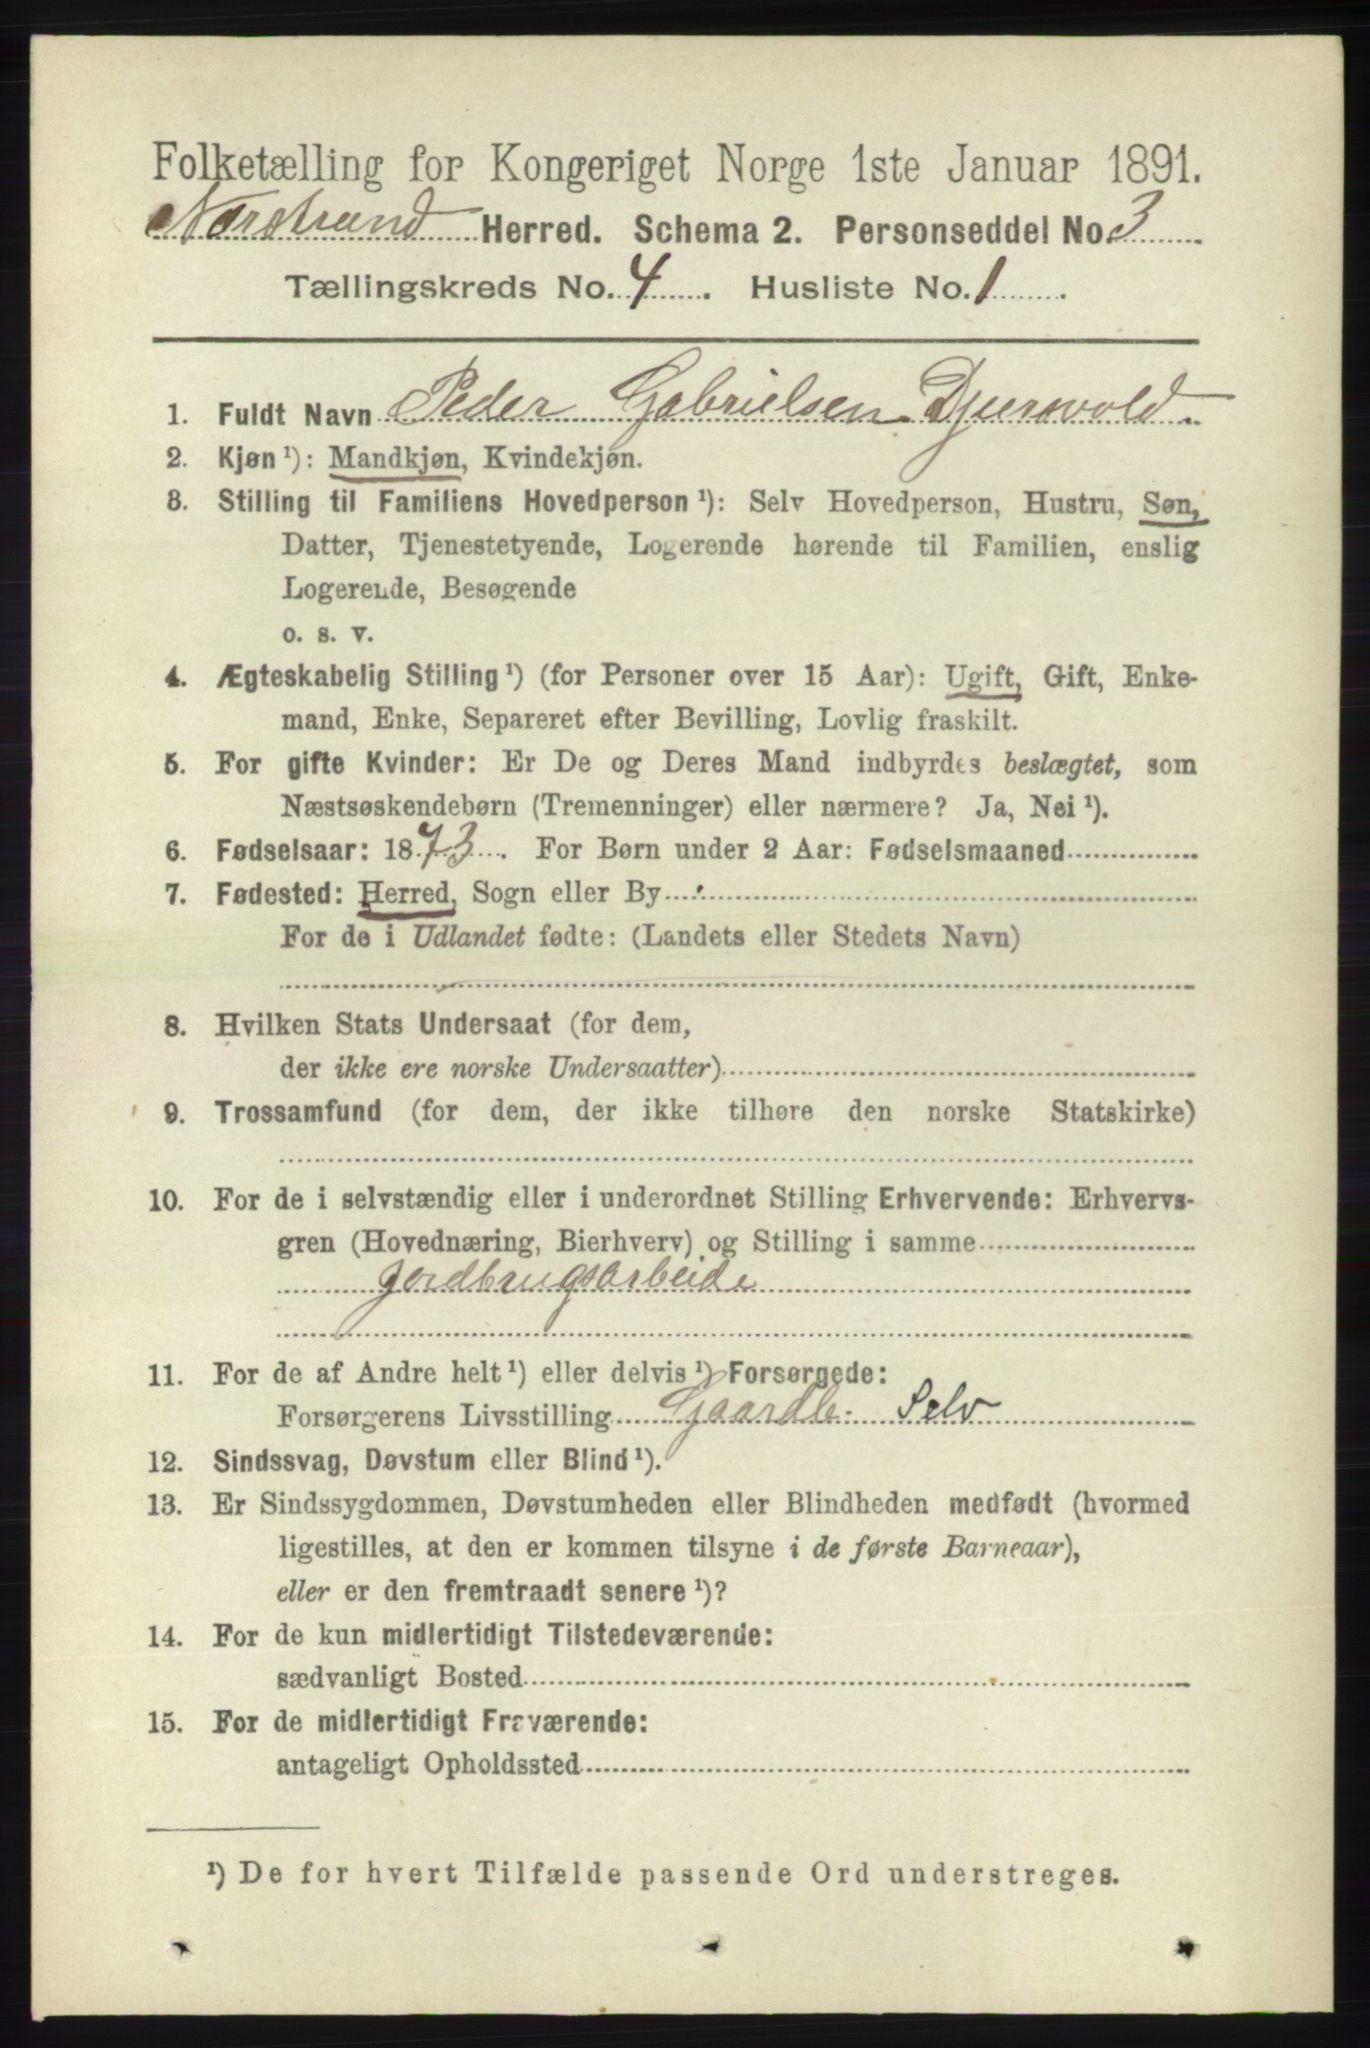 Folketælling for Kongeriget Norge 1ste Januar 1891.
Nærstrand Herred. Schema 2. Personseddel No. 3
Tællingskreds No. 4. Husliste No. 1.
1. Fuldt Navn Peder Gabrielsen Djursvold.
2. Kjøn ¹): Mandkjøn, Kvindekjøn.
3. Stilling til Familiens Hovedperson ¹): Selv Hovedperson, Hustru, Søn,
Datter, Tjenestetyende, Logerende hørende til Familien, enslig
Logerende, Besøgende
o. s. v.
4. Ægteskabelig Stilling ¹) (for Personer over 15 Aar): Ugift, Gift, Enke-
mand, Enke, Separeret efter Bevilling, Lovlig fraskilt.
5. For gifte Kvinder: Er De og Deres Mand indbyrdes beslægtet, som
Næstsøskendebørn (Tremenninger) eller nærmere? Ja, Nei ¹).
6. Fødselsaar: 1873. For Børn under 2 Aar: Fødselsmaaned
7. Fødested: Herred, Sogn eller By
For de i Udlandet fødte: (Landets eller Stedets Navn)
8. Hvilken Stats Undersaat (for dem,
der ikke ere norske Undersaatter)
9. Trossamfund (for dem, der ikke tilhøre den norske Statskirke)
10. For de i selvstændig eller i underordnet Stilling Erhvervende: Erhvervs-
gren (Hovednæring, Bierhverv) og Stilling i samme
Jordbrugsarbeide
11. For de af Andre helt ¹) eller delvis ¹) Forsørgede:
Forsørgerens Livsstilling Gaardb. Selv
12. Sindssvag, Døvstum eller Blind ¹).
13. Er Sindssygdommen, Døvstumheden eller Blindheden medfødt (hvormed
ligestilles, at den er kommen tilsyne i de første Barneaar),
eller er den fremtraadt senere ¹)?
14. For de kun midlertidigt Tilstedeværende:
sædvanligt Bosted
15. For de midlertidigt Fraværende:
antageligt Opholdssted
¹) De for hvert Tilfælde passende Ord understreges.